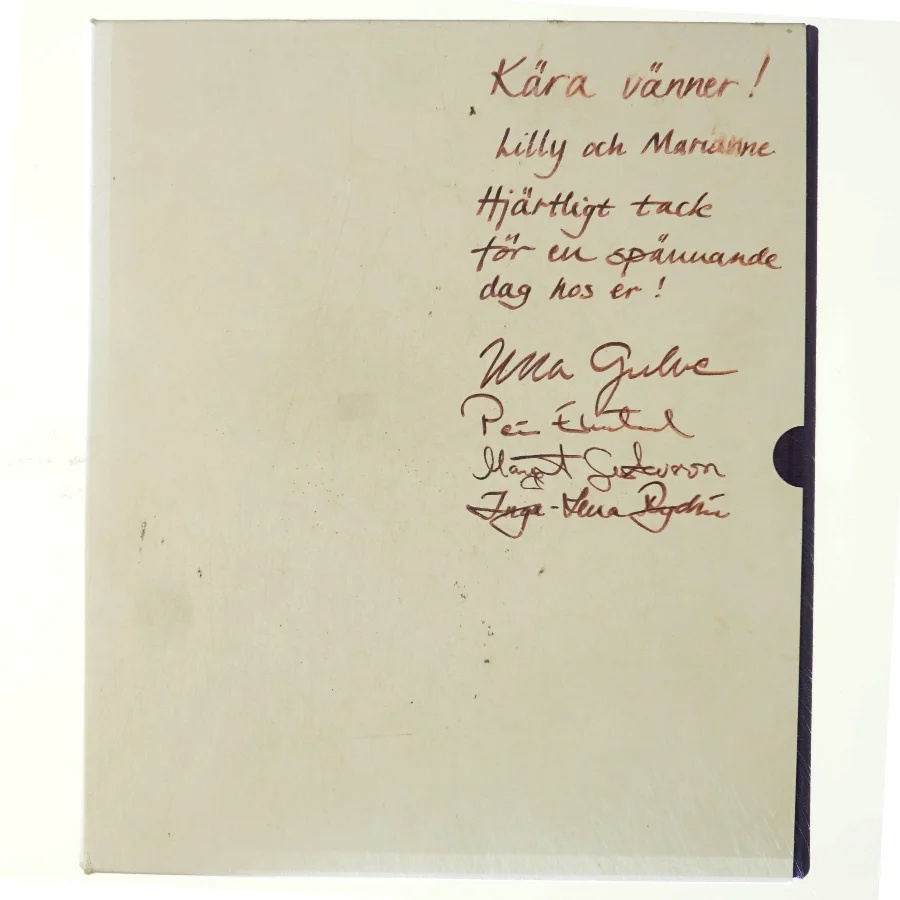 Kära vänner!
Lilly och Marianne
Hjärtligt tack
för en spännande
dag hos er!
Ulla Gulve
Margot Gustavsson
Inga-Lena Rydén